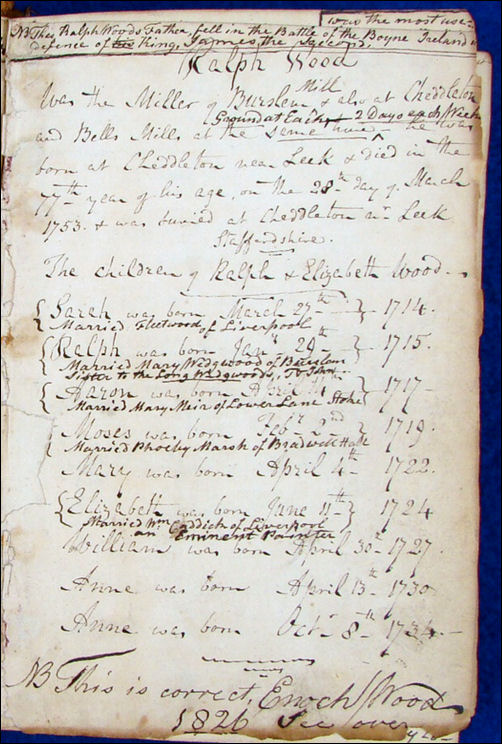 was the most use-
NB This Ralph Woods Father, fell in the Battle of the Boyne Ireland in
defence of his King, James the Second,
Ralph Wood
Was the Miller of Burslem Mill & also at Cheddleton
Ground at Each 2 Days each Week
and Bells Mills at the same time he was
born at Cheddleton near Leek & died in the
77th year of his age, on the 28th day of March
1753. & was buried at Cheddleton nr Leek
Staffordshire.
The Children of Ralph & Elizabeth Wood.
Sarah was born March 27th 1714.
Married Fleetwood of Liverpool
Ralph was born Jany 29th 1715.
Married Mary Wedgwood of Burslem
Sister to the Long Wedgwoods, To John
Aaron was born April 1717
Married Mary Meir of Lower Lane Stoke
Moses was born Feby 2nd 1719.
Married Phoeby Marsh of Bradwell Hall
Mary was born April 4th 1722.
Elizabeth was born June 11th 1724
Married Wm Caddick of Liverpool
an Eminent Painter
William was born April 30th 1727.
Anne was born April 13th 1730
Anne was born Octr 8th 1734.
NB This is correct, Enoch Wood
1826 See over